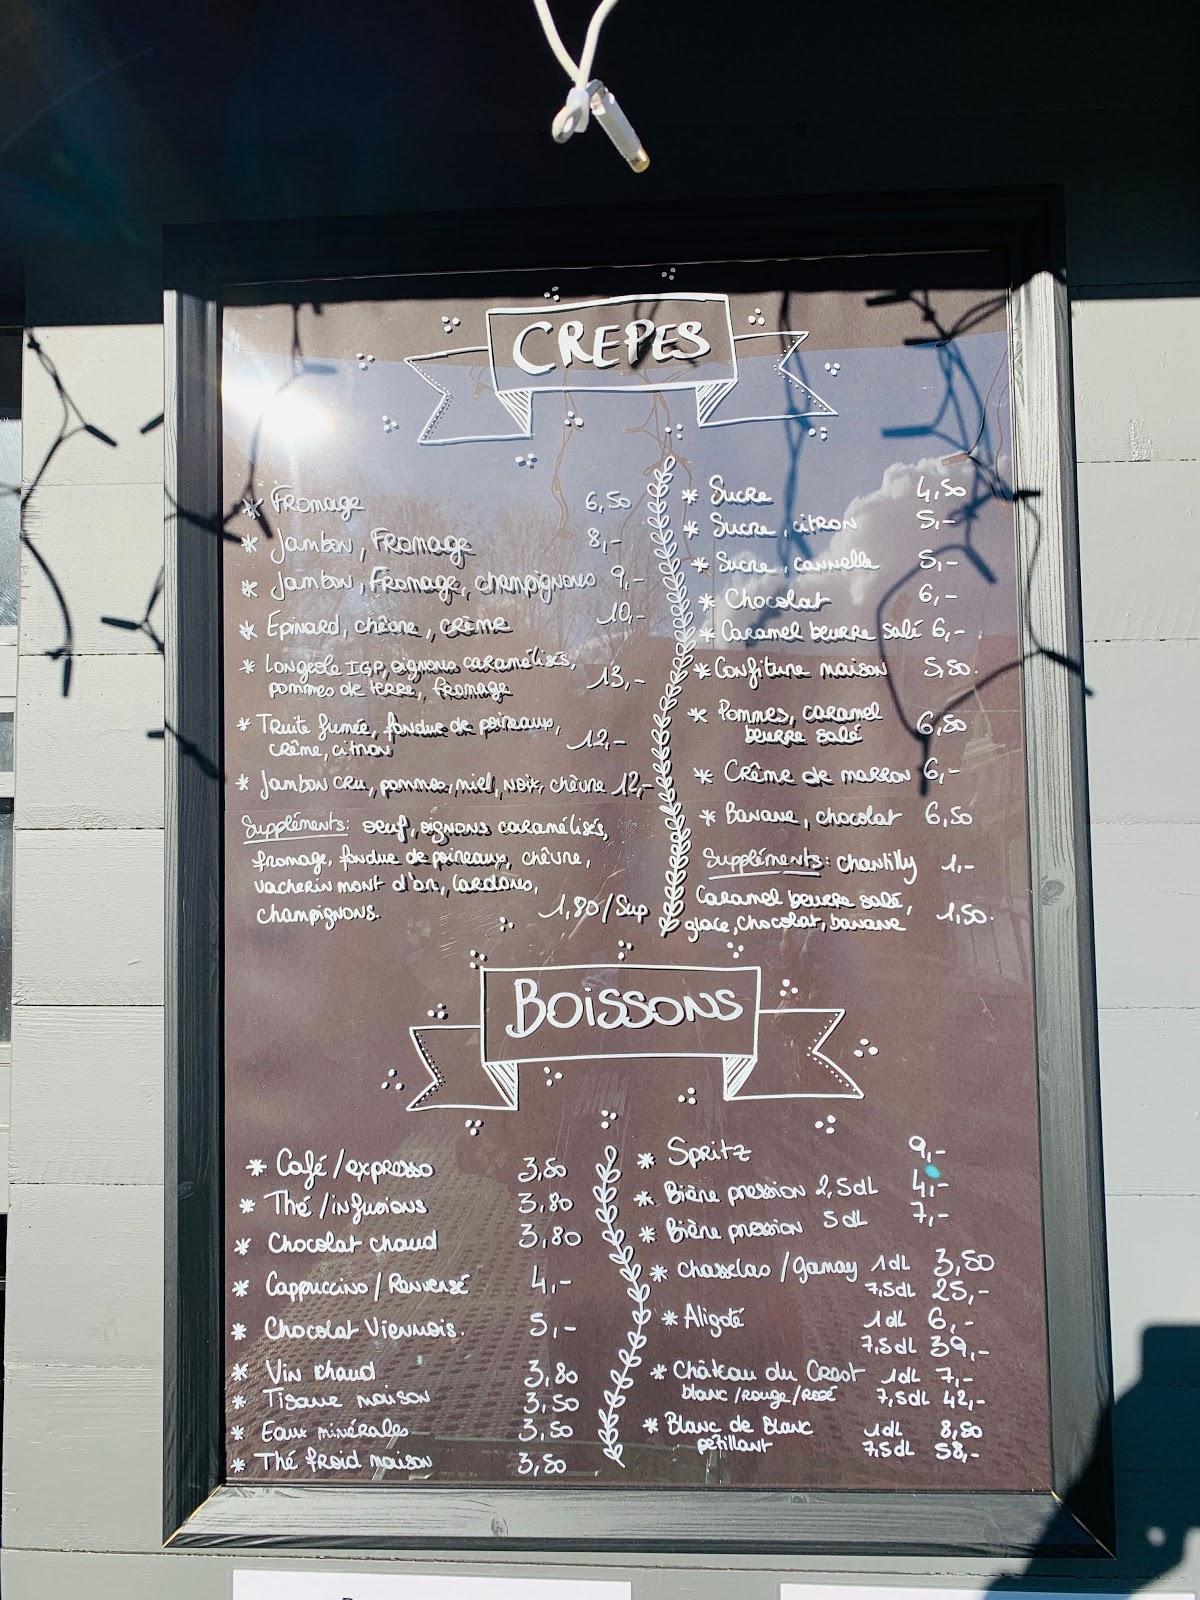 CREPES
* Fromage 6,50
* Jambon, Fromage 8,-
* Jambon, Fromage, champignons 9,-
* Epinard, chèvre, crème 10,-
* Longeole IGP, oignons caramélisés,
pommes de terre, fromage 13,-
* Truite fumée, fondue de poireaux,
crème, citron 12,-
* Jambon cru, pommes, miel, noix, chèvre 12,-
Suppléments: oeuf, oignons caramélisés,
fromage, fondue de poireaux, chêvre,
vacherin mont d'or, lardons,
champignons. 1,80/Sup
* Sucre 4,50
* Sucre, citron 5,-
* Sucre, cannelle 5,-
* Chocolat 6,-
* Caramel beurre salé 6,-
* Confiture maison 5,50.
* Pommes, caramel
beurre salé 6,50
* Crème de marron 6,-
* Banane, chocolat 6,50
Suppléments: chantilly 1,-
Caramel beurre salé,
glace, chocolat, banane 1,50.
BOISSONS
* Café/expresso 3,50
* Thé/infusions 3,80
* Chocolat chaud 3,80
* Cappuccino/Renversé 4,-
* Chocolat Viennois. 5,-
* Vin chaud 3,80
* Tisane maison 3,50
* Eaux minérales 3,50
* Thé froid maison 3,50
* Spritz 9,-
* Bière pression 2,5dL 4,-
* Bière pression 5dL 7,-
* Chasselas/gamay 1dL 3,50
7,5dL 25,-
* Aligoté 1dL 6,-
7,5dL 39,-
* Château du Crest 1dL 7,-
blanc/rouge/rosé 7,5dL 42,-
* Blanc de Blanc 1dL 8,50
pétillant 7,5dL 58,-